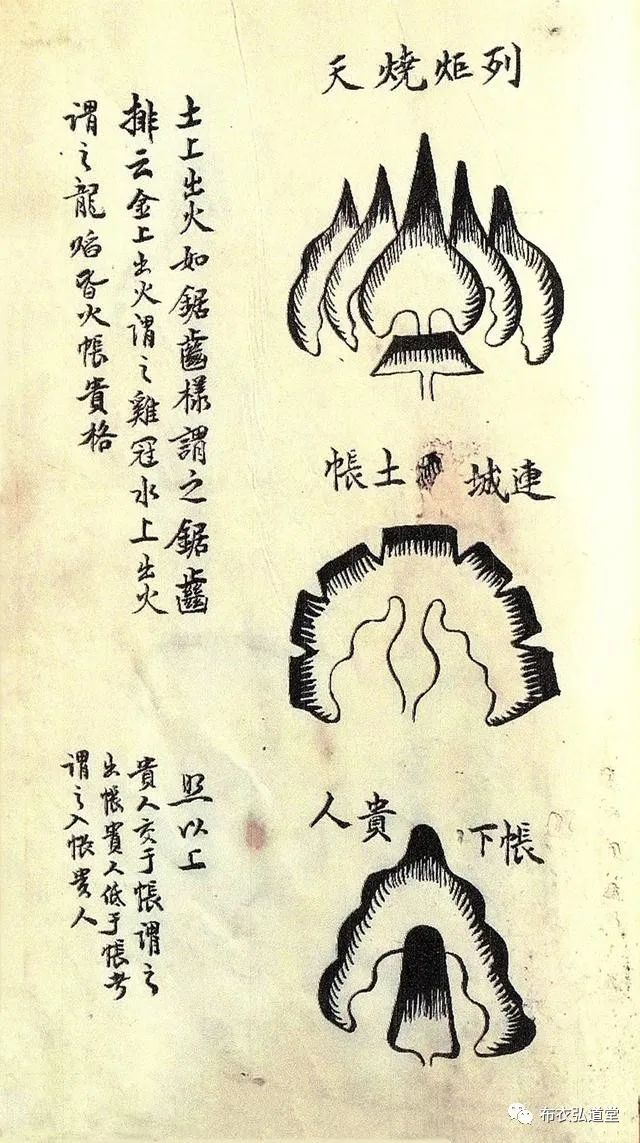 列炬燒天
土上出火如鋸齒樣謂之鋸齒
排云金上出火謂之雞冠水上出火
謂之龍焰皆火帳貴格
連城土帳
帳下貴人
照以上
貴人交于帳謂之
出帳貴人低于帳者
謂之入帳貴人
布衣弘道堂